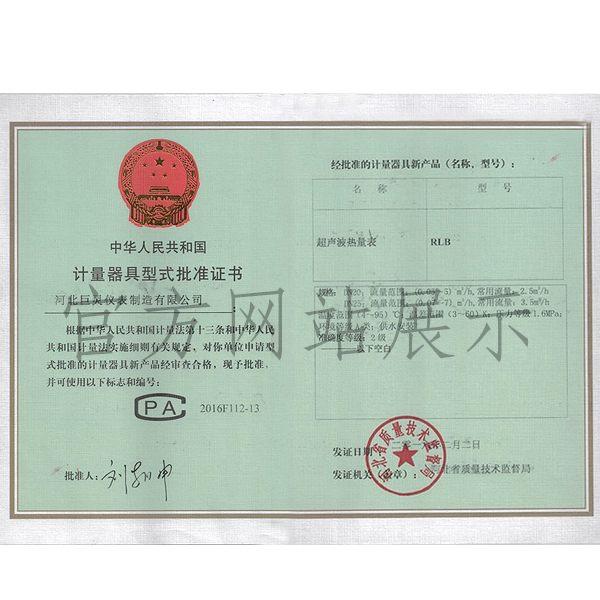 中华人民共和国
计量器具型式批准证书
河北巨昊仪表制造有限公司:
根据中华人民共和国计量法第十三条和中华人民
共和国计量法实施细则有关规定,对你单位申请型
式批准的计量器具新产品经审查合格,现予批准,
并可使用以下标志和编号:
CPA 2016F112-13
批准人:
经批准的计量器具新产品(名称、型号):
名 称 型 号
超声波热量表 RLB
规格: DN20, 流量范围: (0.05-5) m³/h, 常用流量: 2.5m³/h
DN25, 流量范围: m³/h, 常用流量: 3.5m³/h
温度范围(4-95)℃; 温差范围(3-60) K; 压力等级 1.6MPa;
环境等级: 类; 供水安装
准确度等级: 2级
以下空白
发证日期 二月二日
发证机关(公章): 河北省质量技术监督局
河北省质量技术监督局
官方网站展示